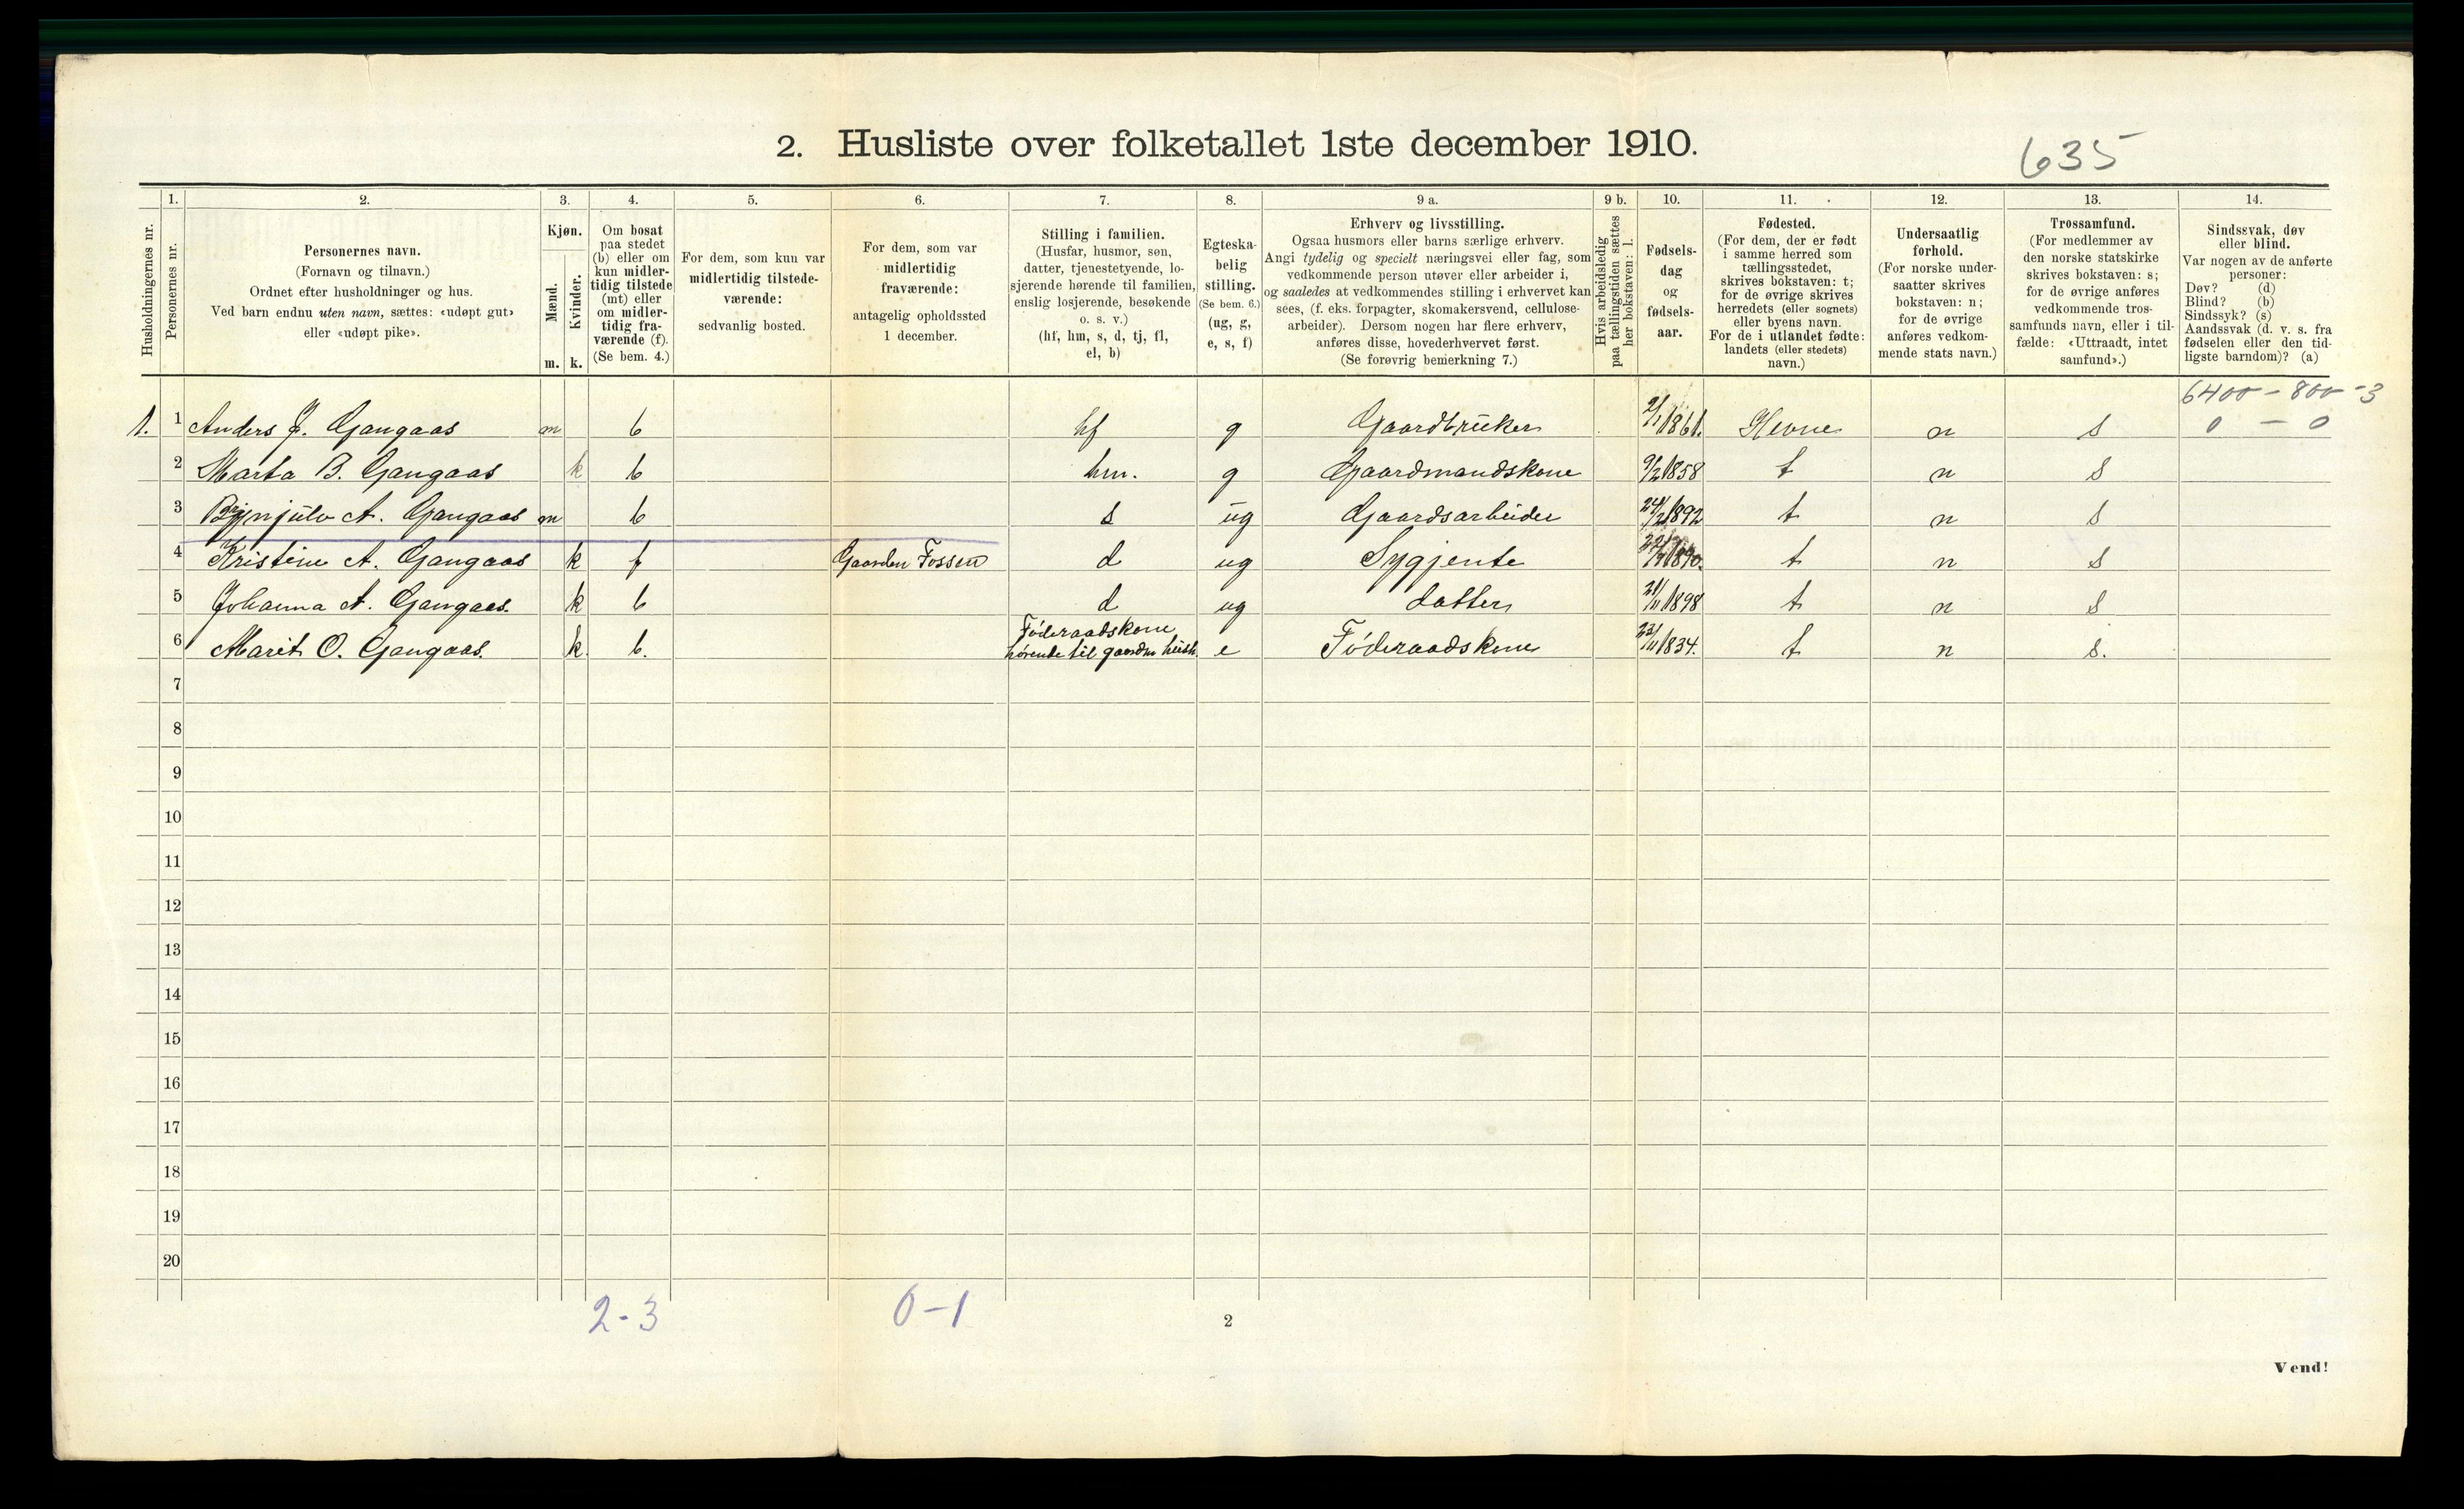 2. Husliste over folketallet 1ste december 1910.
635
Husholdningernes nr.
1.
Personernes nr.
2.
Personernes navn.
(Fornavn og tilnavn.)
Ordnet efter husholdninger og hus.
Ved barn endnu uten navn, sættes: «udøpt gut»
eller «udøpt pike».
3.
Kjøn.
Mænd.
Kvinder.
m. k.
4.
Om bosat
paa stedet
(b) eller om
kun midler-
tidig tilstede
(mt) eller
om midler-
tidig fra-
værende (f).
(Se bem. 4.)
5.
For dem, som kun var
midlertidig tilstede-
værende:
sedvanlig bosted.
6.
For dem, som var
midlertidig
fraværende:
antagelig opholdssted
1 december.
7.
Stilling i familien.
(Husfar, husmor, søn,
datter, tjenestetyende, lo-
sjerende hørende til familien,
enslig losjerende, besøkende
o. s. v.)
(hf, hm, s, d, tj, fl,
el, b)
8.
Egteska-
belig
stilling.
(Se bem. 6.)
(ug, g,
e, s, f)
9 a.
Erhverv og livsstilling.
Ogsaa husmors eller barns særlige erhverv.
Angi tydelig og specielt næringsvei eller fag, som
vedkommende person utøver eller arbeider i,
og saaledes at vedkommendes stilling i erhvervet kan
sées, (f. eks. forpagter, skomakersvend, cellulose-
arbeider). Dersom nogen har flere erhverv,
anføres disse, hovederhvervet først.
(Se forøvrig bemerkning 7.)
9 b.
Hvis arbeidsledig
paa tællingstiden sættes
her bokstaven: l.
10.
Fødsels-
dag
og
fødsels-
aar.
11.
Fødested.
(For dem, der er født
i samme herred som
tællingsstedet,
skrives bokstaven: t;
for de øvrige skrives
herredets (eller sognets)
eller byens navn.
For de i utlandet fødte:
landets (eller stedets)
navn.)
12.
Undersaatlig
forhold.
(For norske under-
saatter skrives
bokstaven: n;
for de øvrige
anføres vedkom-
mende stats navn.)
13.
Trossamfund.
(For medlemmer av
den norske statskirke
skrives bokstaven: s;
for de øvrige anføres
vedkommende tros-
samfunds navn, eller i til-
fælde: «Uttraadt, intet
samfund».)
14.
Sindssvak, døv
eller blind.
Var nogen av de anførte
personer:
Døv? (d)
Blind? (b)
Sindssyk? (s)
Aandssvak (d. v. s. fra
fødselen eller den tid-
ligste barndom)? (a)
6400 - 800 - 3
1. 1 Anders J. Gangaas m b hf g Gaardbruker 2/1 1861. Hevne n s 0 - 0
2 Marta B. Gangaas k b hm. g Gaardmandskone 9/2 1858 t n s
3 Brynjulv A. Gangaas m b s ug Gaardsarbeider 24/2 1892 t n s
4 Kristine A. Gangaas k f Gaarden Fossen d ug Sygjente 1890. t n s
5 Johanna A. Gangaas. k b d ug datter 21/11 1898 t n s
6 Marit O. Gangaas. k b. Føderaadskone
hørende til gaardens e Føderaadskone 23/11 1834. t n s.
7
8
9
10
11
12
13
14
15
16
17
18
19
20
2-3
0-1
2
Vend!